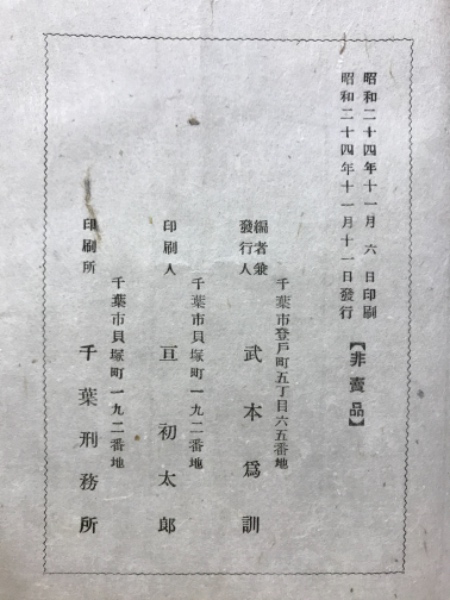 昭和二十四年十一月六日印刷
昭和二十四年十一月十一日發行
【非賣品】
千葉市登戸町五丁目六五番地
編者兼
發行人 武本爲訓
千葉市貝塚町一九二番地
印刷人 亘初太郎
千葉市貝塚町一九二番地
印刷所 千葉刑務所